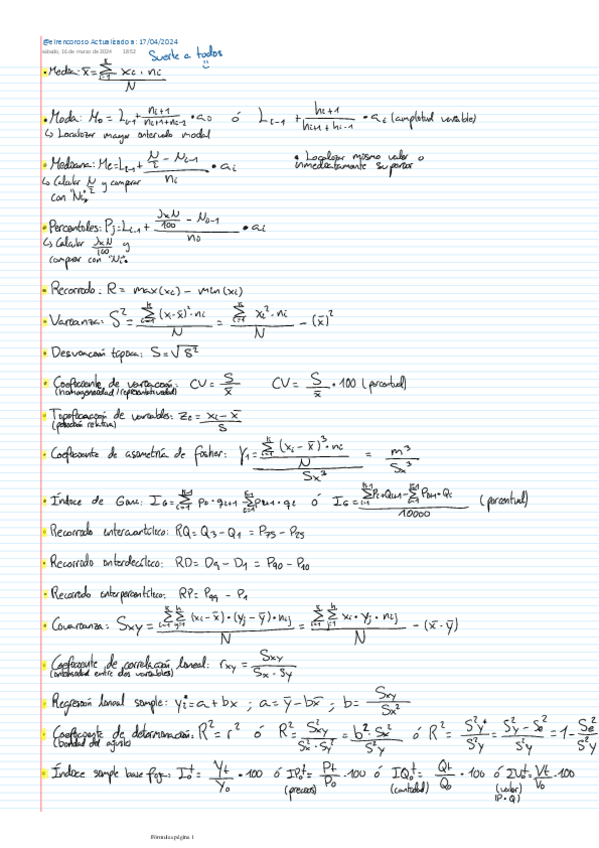 @elrencoroso Actualizado a: 17/04/2024
sábado, 16 de marzo de 2024 18:52
Suerte a todos
• Media: x̄ = Σ(i=1→k) xi · ni / N
• Moda: Mo = Li-1 + ni+1 / (ni+1 + ni-1) · ai ó Li-1 + hi+1 / (hi+1 + hi-1) · ai (amplitud variable)
↳ Localizar mayor intervalo modal
• Mediana: Me = Li-1 + (N/2 - Ni-1) / ni · ai • Localizar mismo valor o inmediatamente superior
↳ Calcular N/2 y comparar
con "Ni"
• Percentiles: Pj = Li-1 + (JxN/100 - Ni-1) / ni · ai
↳ Calcular JxN/100 y
comparar con "Ni"
• Recorrido: R = max(xi) - min(xi)
• Varianza: S² = Σ(i=1→k) (xi-x̄)² · ni / N = Σ(i=1→k) xi² · ni / N - (x̄)²
• Desviación típica: S = √S²
• Coeficiente de variación: CV = S / x̄ CV = S / x̄ · 100 (porcentual)
(homogeneidad/representatividad)
• Tipificación de variables: zi = (xi - x̄) / S
(posición relativa)
• Coeficiente de asimetría de fisher: γ1 = (Σ(i=1→k) (xi - x̄)³ · ni / N) / Sx³ = m³ / Sx³
• Índice de Gini: IG = Σ(i=1→k-1) pi · qi+1 - Σ(i=1→k-1) pi+1 · qi ó IG = (Σ(i=1→k-1) Pi · Qi+1 - Σ(i=1→k-1) Pi+1 · Qi) / 10000 (porcentual)
• Recorrido intercuartílico: RQ = Q3 - Q1 = P75 - P25
• Recorrido interdecílico: RD = D9 - D1 = P90 - P10
• Recorrido interpercentílico: RP = P99 - P1
• Covarianza: Sxy = Σ(i=1→k) Σ(j=1→h) (xi - x̄) · (yj - ȳ) · nij / N = Σ(i=1→k) Σ(j=1→h) xi · yj · nij / N - (x̄ · ȳ)
• Coeficiente de correlación lineal: rxy = Sxy / (Sx · Sy)
(intensidad entre dos variables)
• Regresión lineal simple: yi* = a + bx ; a = ȳ - bx̄ ; b = Sxy / Sx²
• Coeficiente de determinación: R² = r² ó R² = S²xy / (S²x · S²y) = b² · S²x / S²y ó R² = S²y* / S²y = (S²y - S²e) / S²y = 1 - S²e / S²y
(bondad del ajuste)
• Índice simple base fija: I₀ᵗ = Yt / Y₀ · 100 ó IP₀ᵗ = Pt / P₀ · 100 ó IQ₀ᵗ = Qt / Q₀ · 100 ó IV₀ᵗ = Vt / V₀ · 100
(precios) (cantidad) (valor)
(P·Q)
Fórmulas página 1